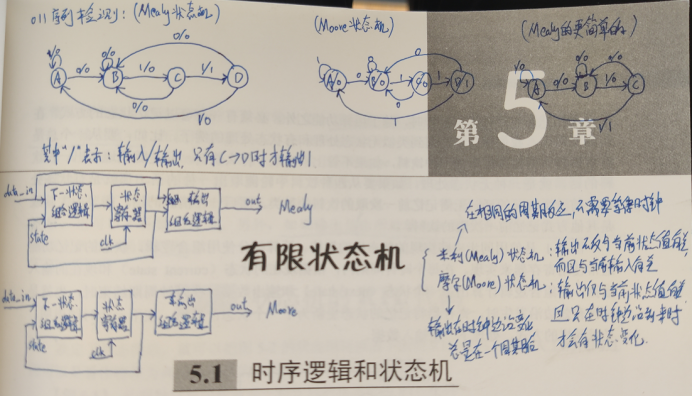 011序列检识别：(Mealy状态机)
(Moore状态机)
(Mealy的更简单的)
1/0 0/0 0/0 1/0 1/1 0/0 0/0 1/0
A B C D
A/0 0 B/0 1 C/0 1 D/1
0 0 1
A 0/0 B 1/0 C
1/1
第 5 章
其中"/"表示：输入/输出，只有C→D时才输出1
data_in 下一状态组合逻辑 状态寄存器 输出组合逻辑 out Mealy
state clk
有限状态机
在相同的周期内反，不需要等时钟
米利(Mealy)状态机：输出不仅与当前状态值有关，
而且与当前输入有关
摩尔(Moore)状态机：输出仅与当前状态值有关
且只在时钟边沿到来时
才会有状态变化.
输出在时钟边沿变化
总是在一个周期后
data_in 下一状态组合逻辑 状态寄存器 输出组合逻辑 out Moore
state clk
5.1 时序逻辑和状态机